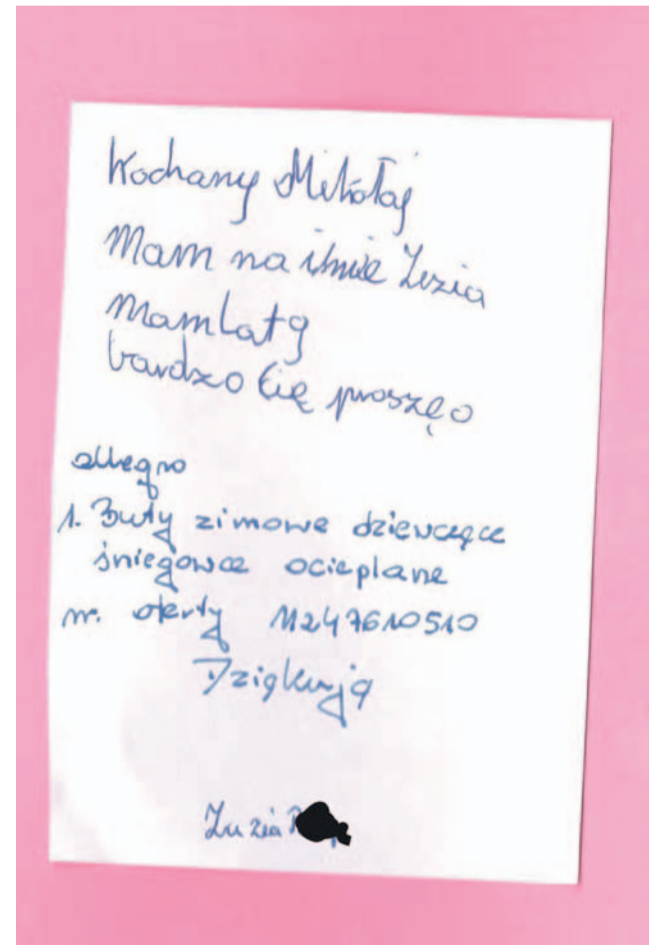 Kochany Mikołaj
Mam na imie Zuzia
Mam Lat 9
bardzo Cię proszę o
allegro
1. Buty zimowe dziewczęce
śniegowce ocieplane
nr. oferty 11247610510
Dziękuję
Zuzia